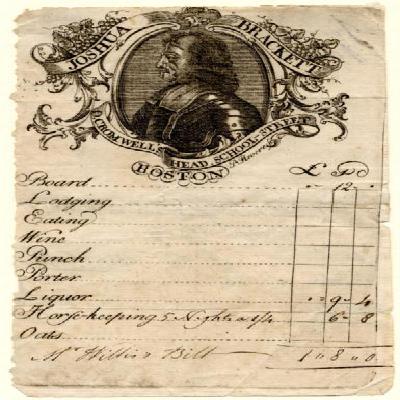 JOSHUA BRACKETT
O. CROMWELLS HEAD SCHOOL-STREET
BOSTON
£ S D
Board " 12 "
Lodging
Eating
Wine
Punch
Porter
Liquor " 9 - 4
Horse-keeping 5 Nights a 1/4 6 - 8
Oats
Mr. Willis's Bill 1 " 8 " 0